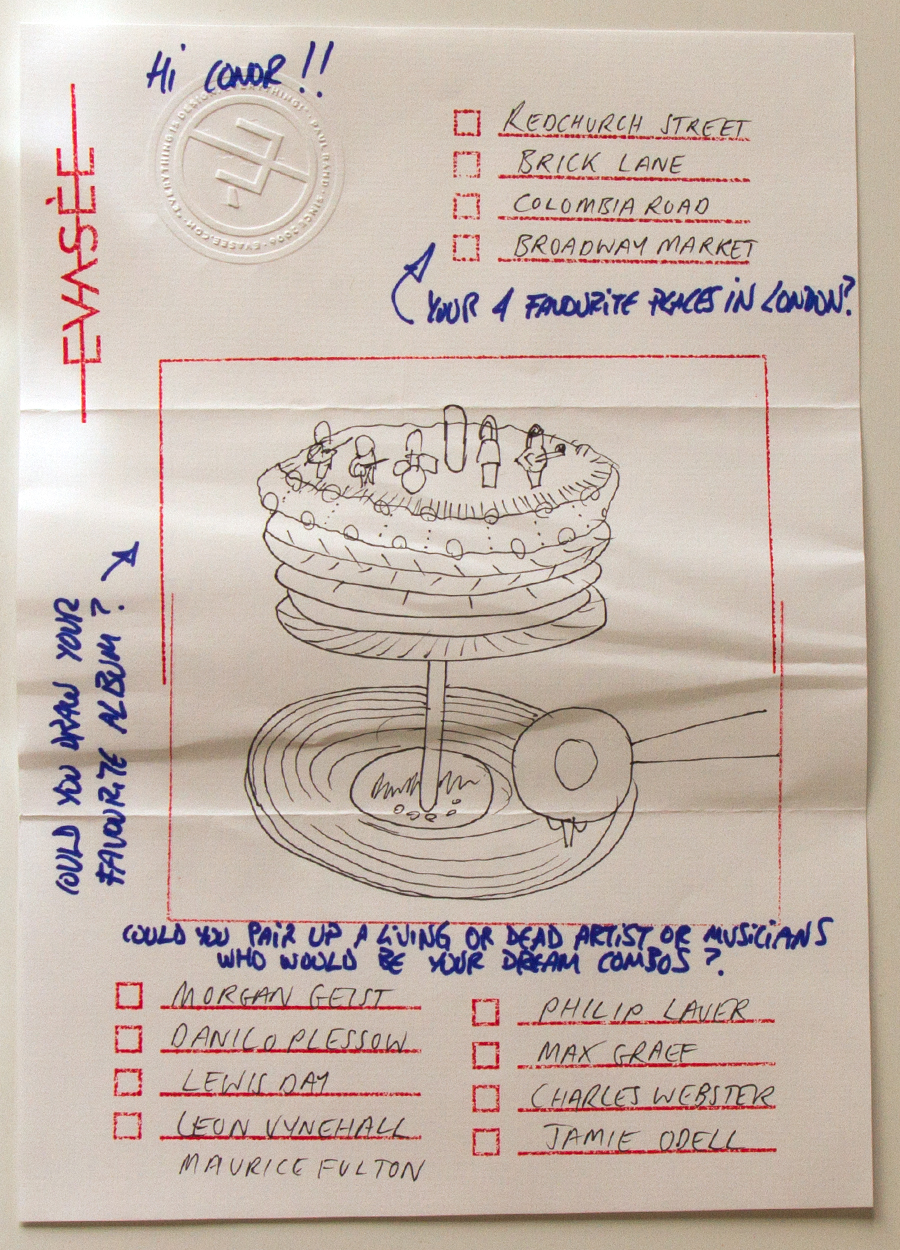 Hi CONOR !!
EVASÈE
EVERYTHING IS DESIGN. EVERYTHING! - PAUL RAND - SINCE 2006 - EVASEE.COM -
REDCHURCH STREET
BRICK LANE
COLOMBIA ROAD
BROADWAY MARKET
YOUR 4 FAVOURITE PLACES IN LONDON?
COULD YOU DRAW YOUR
FAVOURITE ALBUM ?
COULD YOU PAIR UP A LIVING OR DEAD ARTIST OR MUSICIANS
WHO WOULD BE YOUR DREAM COMBOS ?.
MORGAN GEIST
DANILO PLESSOW
LEWIS DAY
LEON VYNEHALL
MAURICE FULTON
PHILIP LAUER
MAX GRAEF
CHARLES WEBSTER
JAMIE ODELL